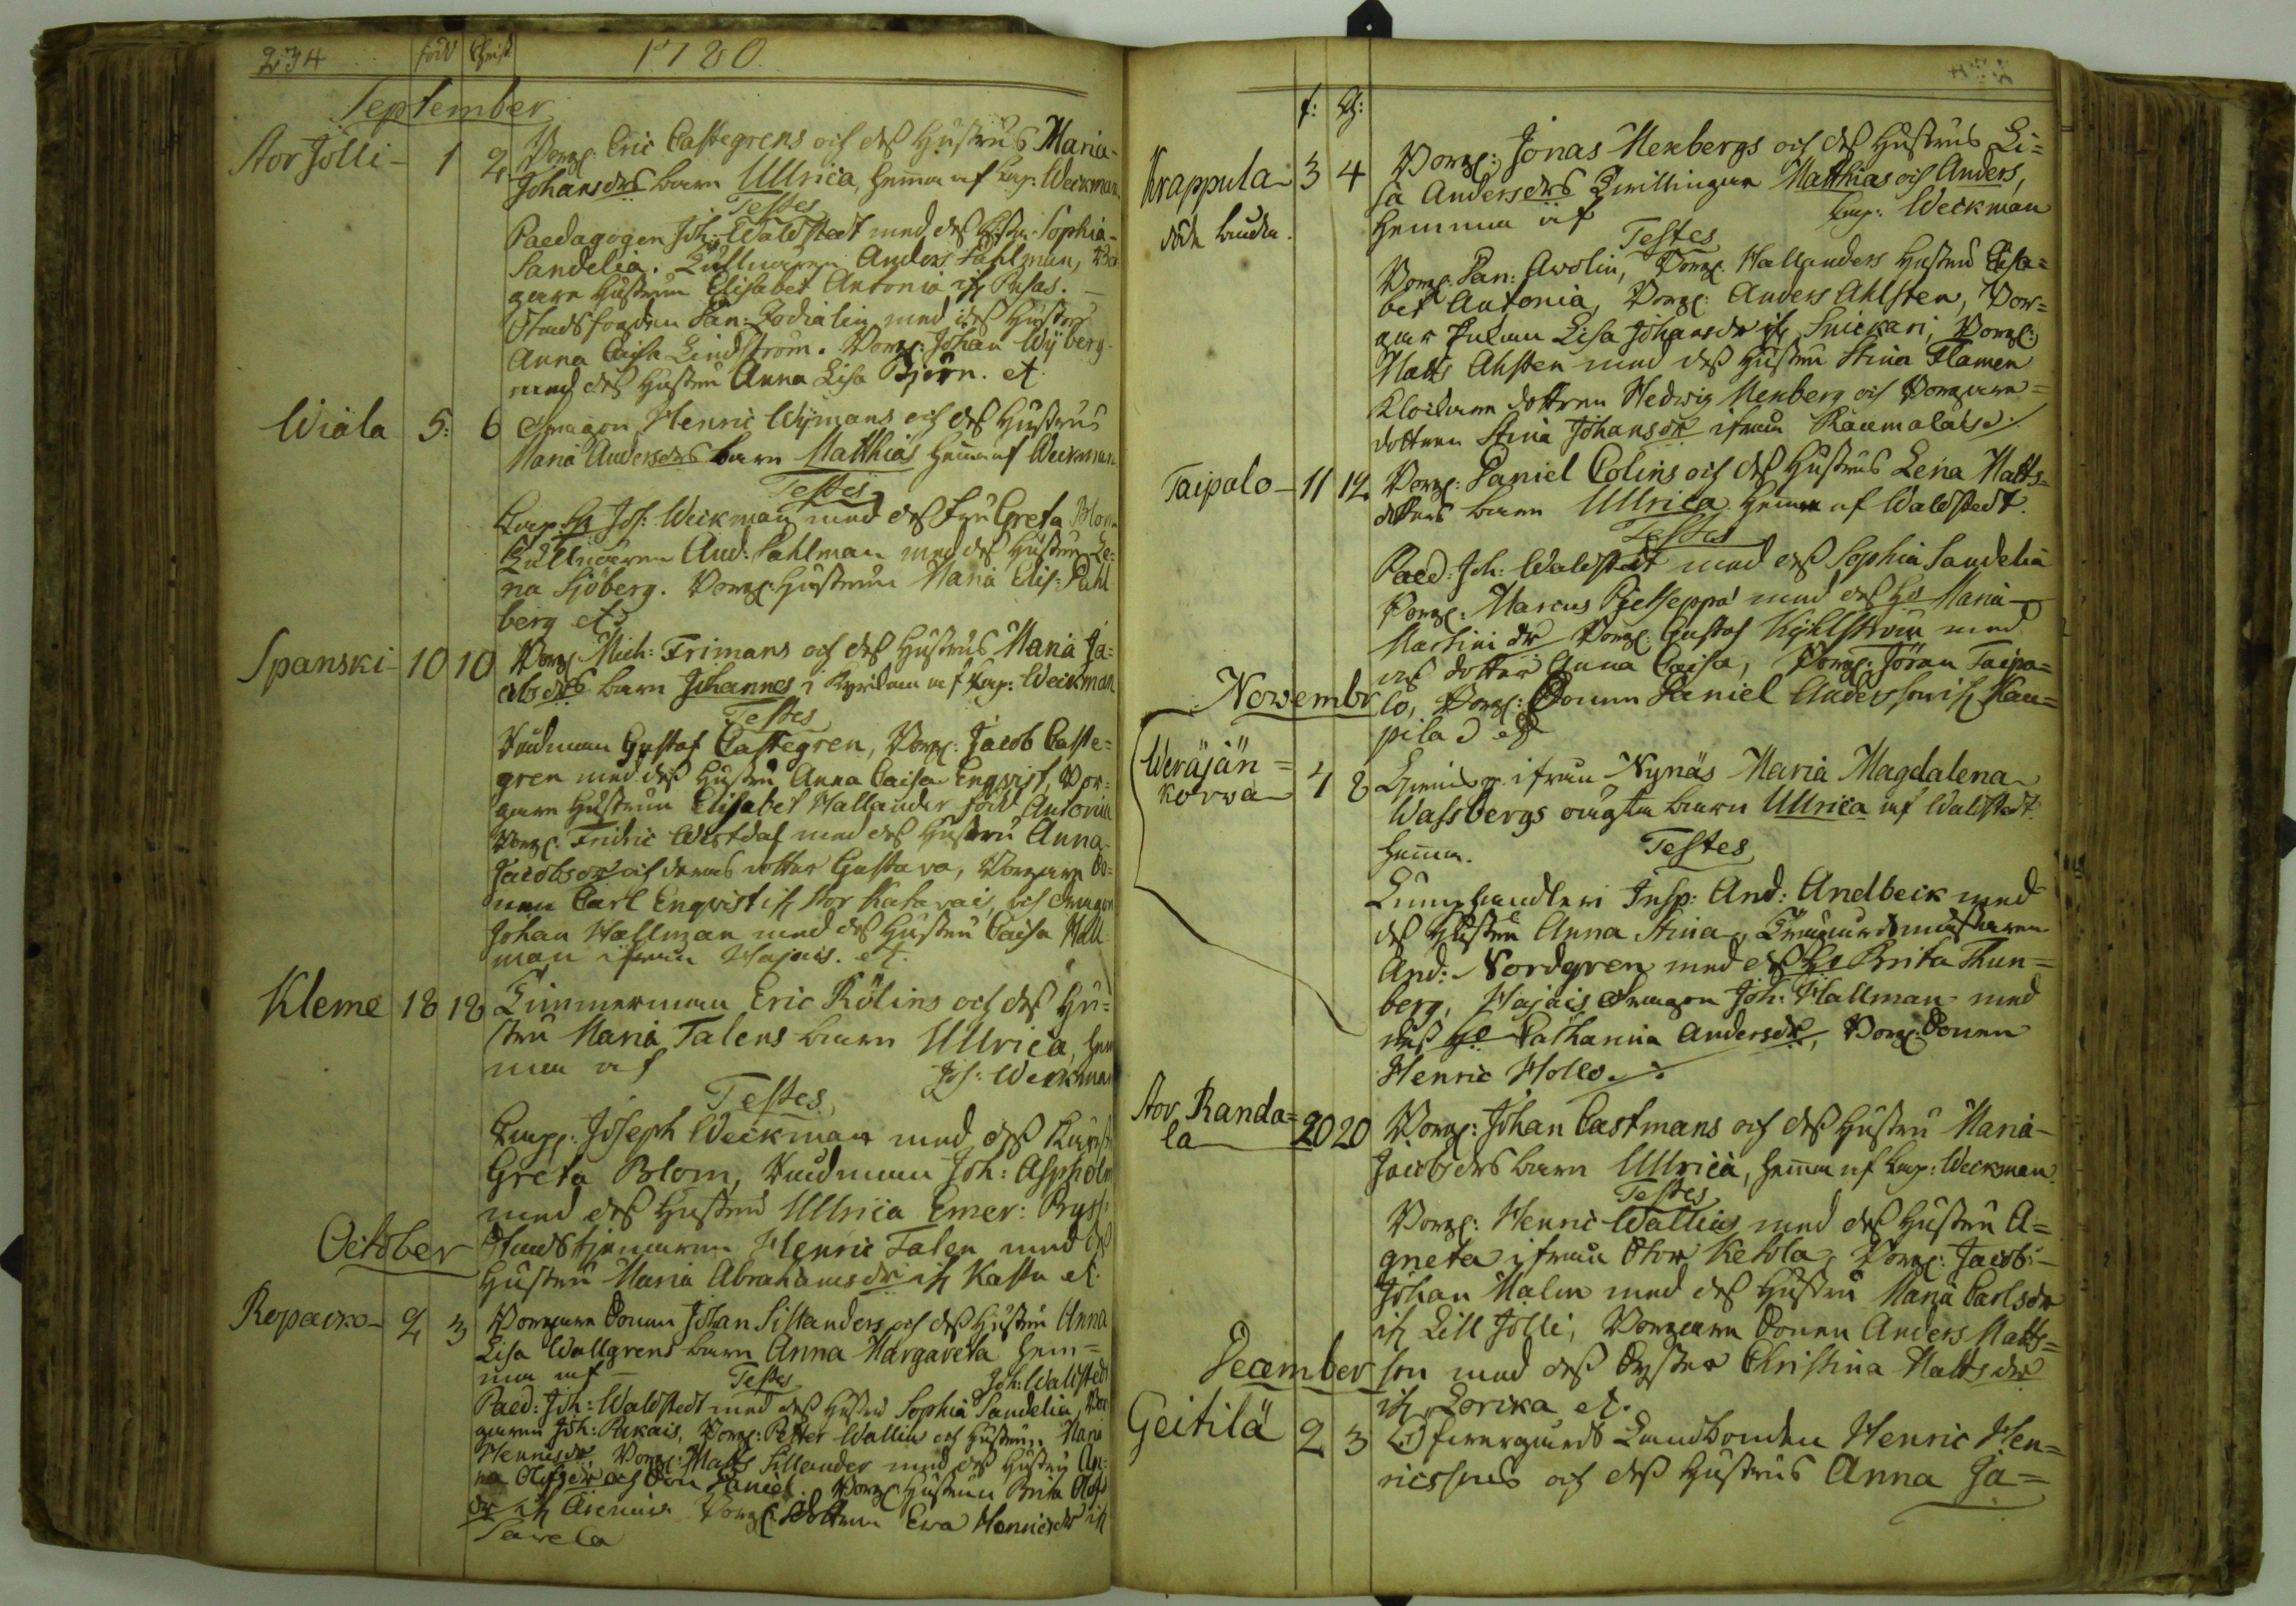 234 född Christ 1780.
September
Stor Jolli - 1 2 Borg: Eric Castegrens och dess hustrus Maria
Johansdrs barn Ullrica, hemma af Cap: Weckman
Testes
Paedagogen Joh: Waldstedt med dess hustru Sophia
Sandelia. Tullnären Anders Pahlman, Bor
gare hustrun Elisabet Antonia ifr Pukas.
Stadsfogden Dan: Bodialin med dess hustru
Anna Caisa Lindström. Borg: Johan Wijberg
med dess hustru Anna Lisa Björn. et.
Wiala 5: 6 Dragon Henric Wijmans och dess hustrus
Maria Andersdrs barn Matthias hemma af Weckman
Testes
Cap: Joh: Weckman med dess Fru Greta Blom
Tullnären And: Pahlman med dess hustru Le=
na Sjöberg. Borg: hustrun Maria Elis: Pahl
berg etc
Spanski - 10 10 Borg: Mich: Frimans och dess hustrus Maria Ja=
cobsdrs barn Johannes i Kyrckan af Cap: Weckman
Testes
Rudman Gustaf Castegren, Borg: Jacob Caste=
gren med dess hustru Anna Caisa Enqvist, Bor=
gare hustrun Elisabet Hallander född Antonia
Borg: Fridric Westdal med dess hustru Anna
Jacobsdr och deras dotter Gustava, Borgare So=
nen Carl Enqvist ifr Stor Katavais, och Dragon
Johan Hallman med dess hustru Caisa Hall
man ifrån Hajais. et.
Kleme 18 18 Timmerman Eric Rölins och dess hu=
stru Maria Talens barn Ullrica, hem
ma af Jos: Weckman
Testes
Cap: Joseph Weckman med dess
Greta Blom, Rudman Joh: Aspholm
med dess hustru Ullrica Emer: Ryss
October Stadstjenaren Henric Talen med dess
hustru Maria Abrahamsdr ifr Katta et.
Ropacko - 2 3 Borgare Sonen Johan Sillanders och dess hustru Anna
Lisa Wallgrens barn Anna Margareta hem=
ma af - Joh: Waldstedt
Testes
Paed: Joh: Waldstedt med dess hustru Sophia Sandelia, Bor
garen Joh: Pukais, Borg: Petter Wallin och hustrun Maria
Henricsdr, Borg: Matts Sillander med dess hustru An=
na Olofsdr och Son Daniel. Borg: hustrun Brita Olofs
dr ifr Borg: dottren Ewa Henricsdr ifr
Tawela
f: Ch:
Krappula - 3 4 Borg: Jonas Menbergs och dess hustrus Li=
döde bada. sa Andersdrs Twillingar Matthias och Anders,
hemma af Cap: Weckman
Testes
Borg: Dan: Awolin, Borg: Hallanders hustru Elisa=
bet Antonia, Borg: Anders Ahlsten, Bor=
gar Enkan Lisa Johansdr ifr Snickari, Borg:
Matts Ahsten med dess hustru Stina Flamen
Klockare dottren Hedwig Menberg och Borgare=
dottren Stina Johansdr ifrån Raumalais.
Taipalo - 11 12 Borg: Daniel Colins och dess hustrus Lena Matts=
dotters barn Ullrica hemma af Waldstedt.
Testes
Paed: Joh: Waldstedt med dess Sophia Sandelia
Borg: Marcus Rjetseppä med dess ho Maria
Martinidr Borg: Gustaf Kijhlström med
dess dotter Anna Caisa, Borg: Jöran Taipa=
November lo, Borg: Sonen Daniel Andersson ifr Kau=
pila etc
Weräjän= 4 8 ifrån Nynäs Maria Magdalena
korwa Wassbergs oägta barn Ullrica af Waldstedt
hemma. Testes
Lumphandleri Insp: And: Andbeck med
dess hustru Anna Stina,
And: Nordgren med dess ho Brita Thun=
berg, Hajais Dragon Joh: Hallman med
dess ho Catharina Andersdr, Borg: Sonen
Henric Hollo.
Stor Randa= 20 20 Borg: Johan Castmans och dess hustru Maria
la Jacobsdrs barn Ullrica, hemma af Cap: Weckman.
Testes
Borg: Henric Wallius med dess hustru A=
gneta ifrån Stor Ketola, Borg: Jacob
Johan Malin med dess hustru Maria Carlsdr
ifr Lill Jolli, Borgare Sonen Anders Matts=
December son med dess Syster Christina Mattsdr
ifr Lorika et.
Geitilä 2 3 Landbonden Henric Hen=
ricssons och dess hustrus Anna Ja=